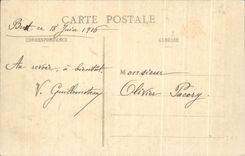 CARTE POSTALE
CORRESPONDANCE
ADRESSE
Brest ce 18 Juin 1916
Au revoir, à bientôt
Monsieur
V. Guillmoteau
Olivier Pacory